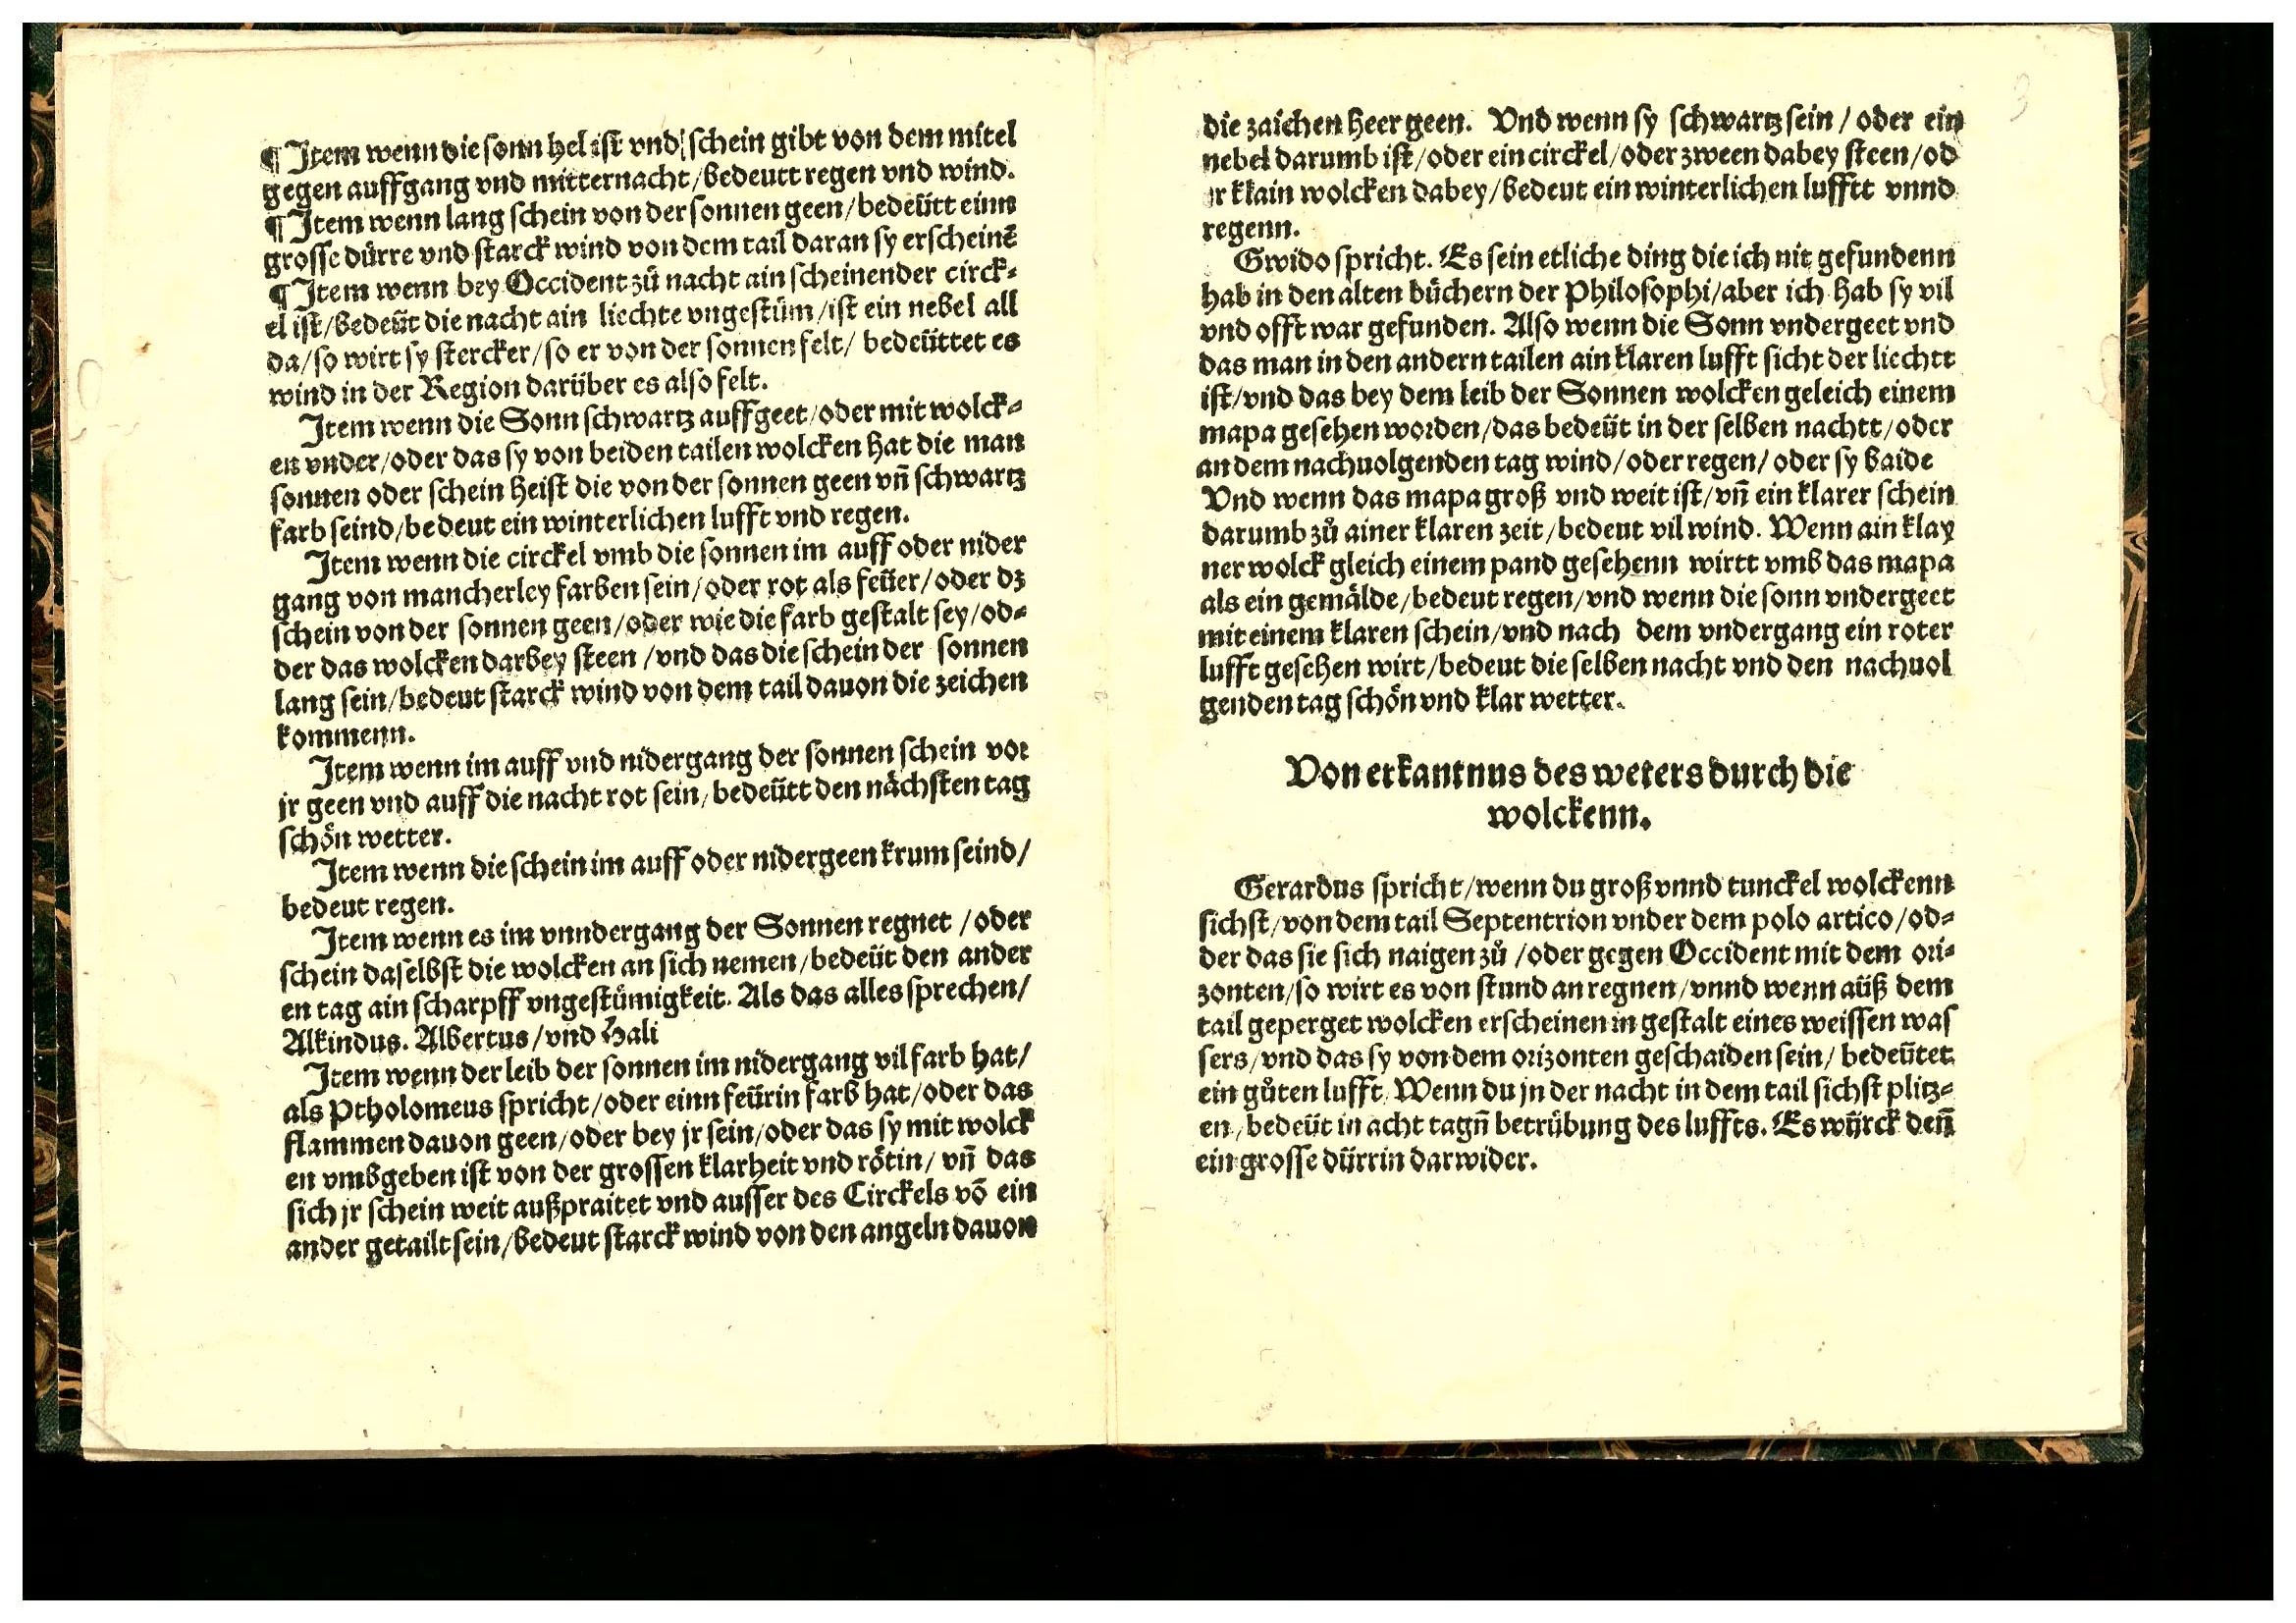 ¶ Item wenn die sonn hel ist vnd schein gibt von dem mitel
gegen auffgang vnd mitternacht/bedeutt regen vnd wind.
¶ Item wenn lang schein von der sonnen geen/bedeütt einn
grosse dürre vnd starck wind von dem tail daran sy erscheinē
¶ Item wenn bey Occident zů nacht ain scheinender circk⸗
el ist/bedeüt die nacht ain liechte vngestüm/ist ein nebel all
da/so wirt sy stercker/so er von der sonnen felt/ bedeüttet es
wind in der Region darüber es also felt.
Item wenn die Sonn schwartz auffgeet/oder mit wolck⸗
en vnder/oder das sy von beiden tailen wolcken hat die man
sonnen oder schein heist die von der sonnen geen vñ schwartz
farb seind/bedeut ein winterlichen lufft vnd regen.
Item wenn die circkel vmb die sonnen im auff oder nider
gang von mancherley farben sein/oder rot als feüer/oder dz
schein von der sonnen geen/oder wie die farb gestalt sey/od⸗
der das wolcken darbey steen/vnd das die schein der sonnen
lang sein/bedeut starck wind von dem tail dauon die zeichen
kommenn.
Item wenn im auff vnd nidergang der sonnen schein vor
jr geen vnd auff die nacht rot sein/bedeütt den nächsten tag
schön wetter.
Item wenn die schein im auff oder nidergeen krum seind/
bedeut regen.
Item wenn es im vnndergang der Sonnen regnet/oder
schein daselbst die wolcken an sich nemen/bedeüt den ander
en tag ain scharpff vngestümigkeit. Als das alles sprechen/
Alkindus. Albertus/vnd Hali
Item wenn der leib der sonnen im nidergang vil farb hat/
als Ptholomeus spricht/oder einn feürin farb hat/oder das
flammen dauon geen/oder bey jr sein/oder das sy mit wolck
en vmbgeben ist von der grossen klarheit vnd rötin/ vñ das
sich jr schein weit außpraitet vnd ausser des Circkels vō ein
ander getailt sein/bedeut starck wind von den angeln dauon
3
die zaichen heer geen. Vnd wenn sy schwartz sein/oder ein
nebel darumb ist/oder ein circkel/oder zween dabey steen/od
er klain wolcken dabey/bedeut ein winterlichen lufftt vnnd
regenn.
Gwido spricht. Es sein etliche ding die ich nit gefundenn
hab in den alten büchern der Philosophi/aber ich hab sy vil
vnd offt war gefunden. Also wenn die Sonn vndergeet vnd
das man in den andern tailen ain klaren lufft sicht der liechtt
ist/vnd das bey dem leib der Sonnen wolcken geleich einem
mapa gesehen worden/das bedeüt in der selben nachtt/oder
an dem nachuolgenden tag wind/oder regen/oder sy baide
Vnd wenn das mapa groß vnd weit ist/vñ ein klarer schein
darumb zů ainer klaren zeit/bedeut vil wind. Wenn ain klay
ner wolck gleich einem pand gesehenn wirtt vmb das mapa
als ein gemälde/bedeut regen/vnd wenn die sonn vndergeet
mit einem klaren schein/vnd nach dem vndergang ein roter
lufft gesehen wirt/bedeut die selben nacht vnd den nachuol
genden tag schön vnd klar wetter.
Von erkantnus des weters durch die
wolckenn.
Gerardus spricht/wenn du groß vnnd tunckel wolckenn
sichst/von dem tail Septentrion vnder dem polo artico/od⸗
der das sie sich naigen zů/oder gegen Occident mit dem ori⸗
zonten/so wirt es von stund an regnen/vnnd wenn aüß dem
tail geperget wolcken erscheinen in gestalt eines weissen was
sers/vnd das sy von dem orizonten geschaiden sein/ bedeütet
ein gůten lufft/Wenn du jn der nacht in dem tail sichst plitz⸗
en/bedeüt in acht tagñ betrübung des luffts. Es wÿrck deñ
ein grosse dürrin darwider.